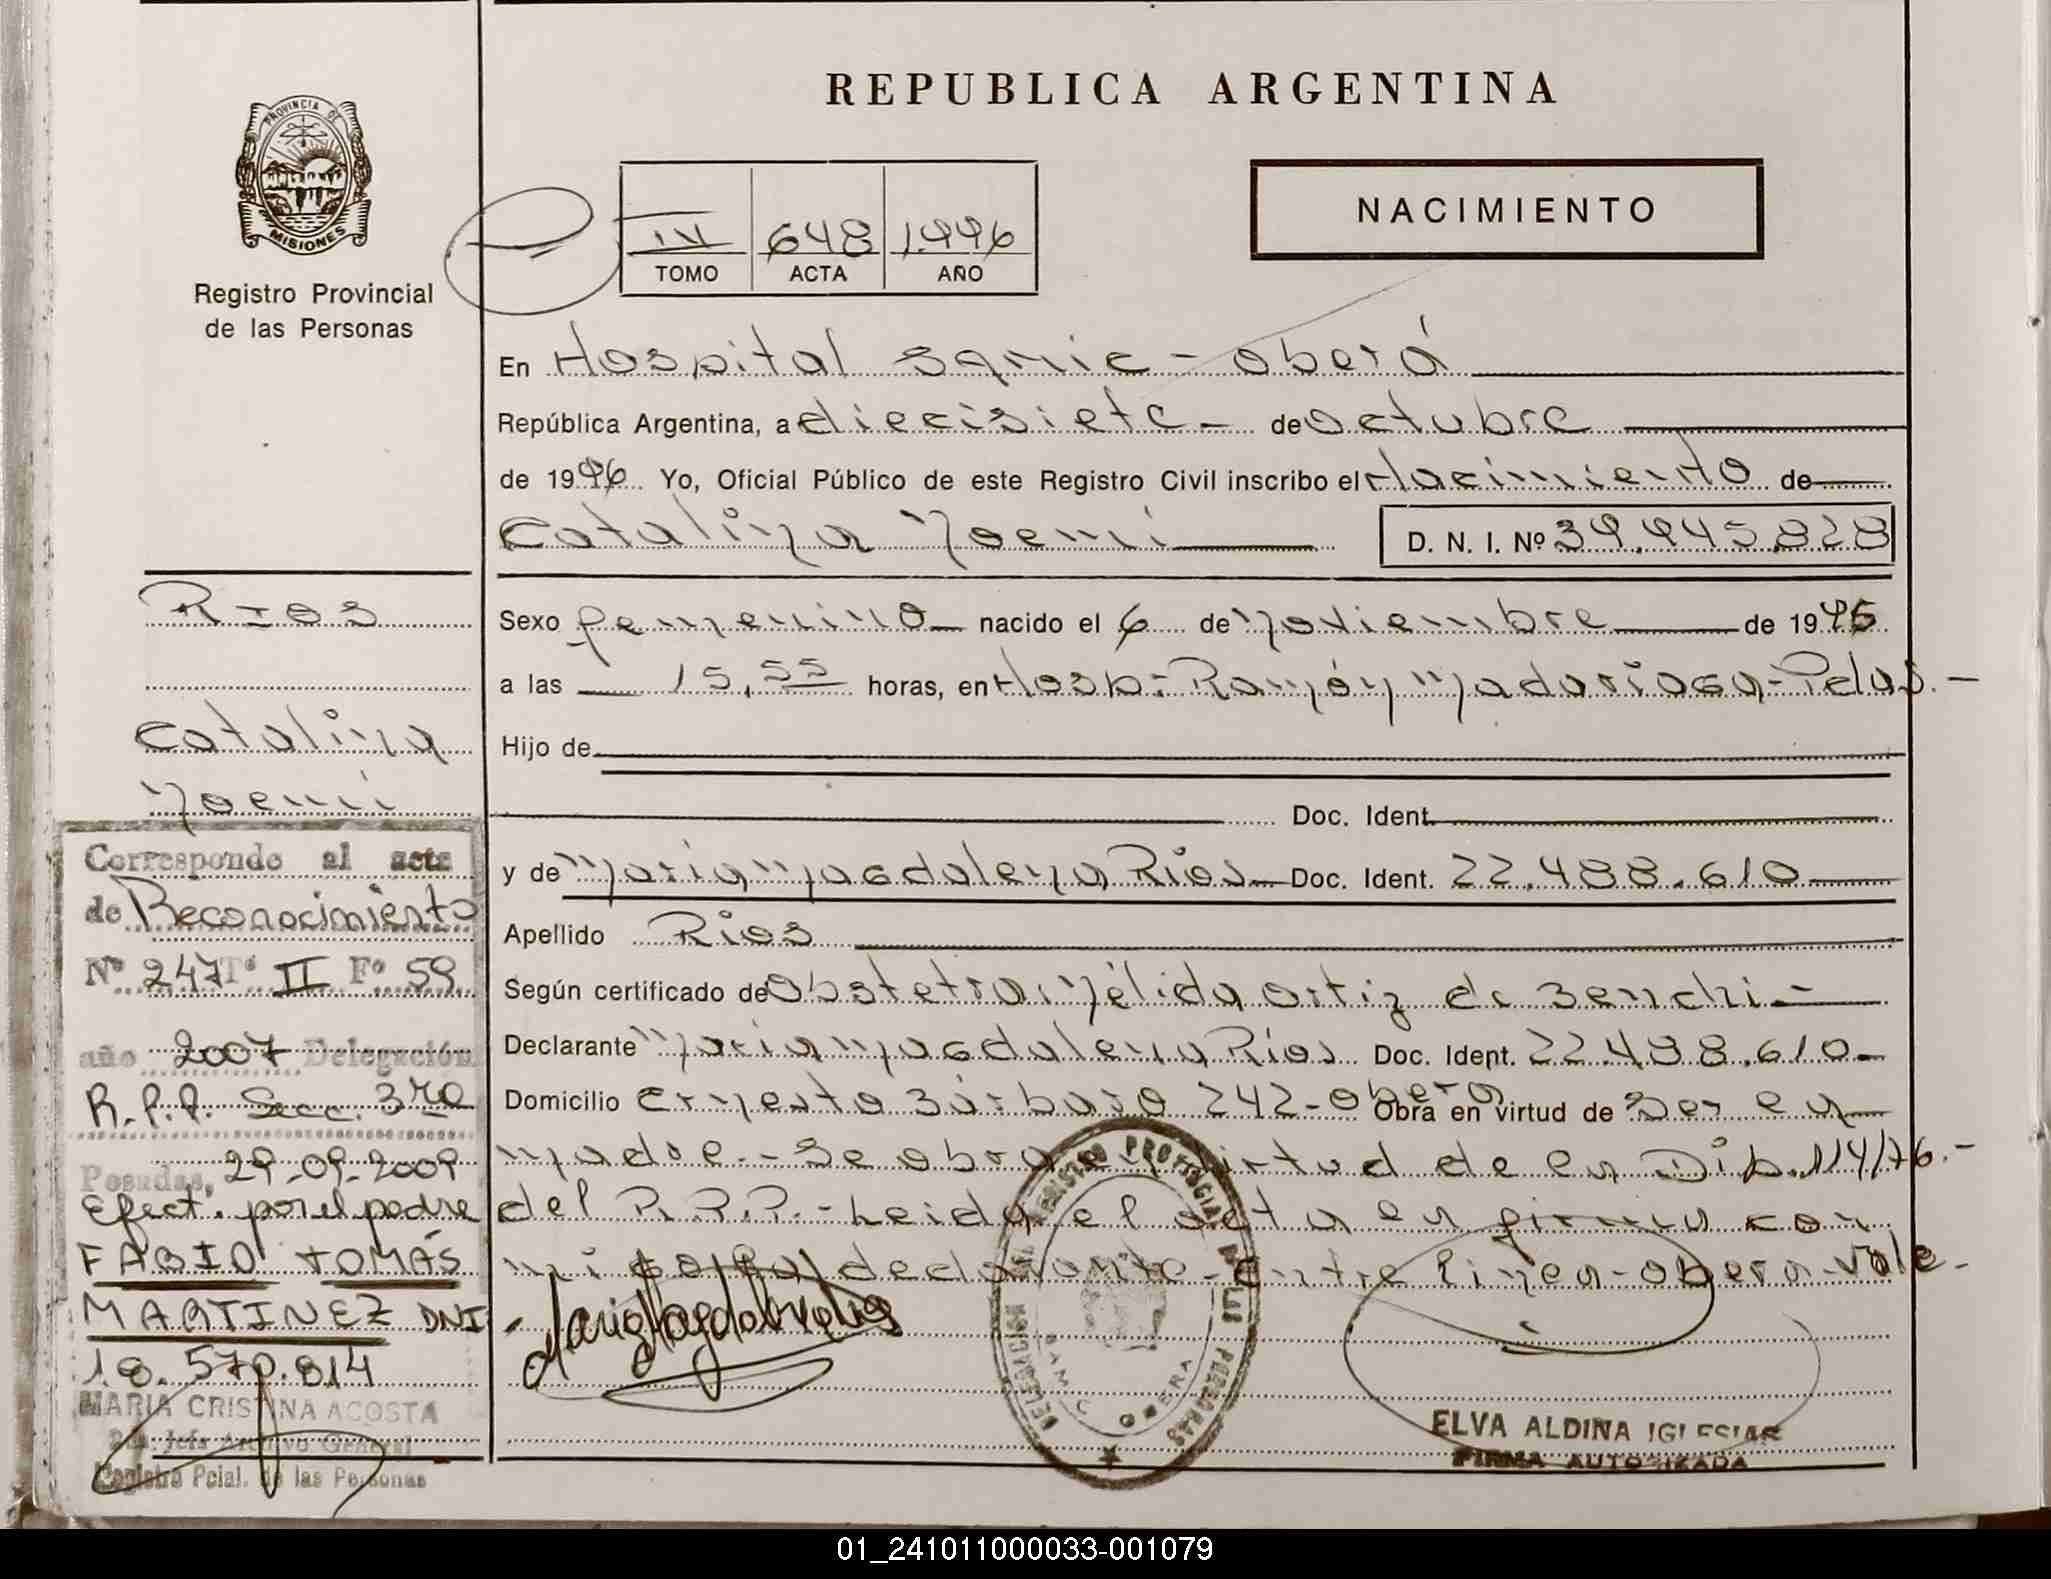 REPUBLICA ARGENTINA
PROVINCIA DE
MISIONES
Registro Provincial
de las Personas
IV 648 1.996
TOMO ACTA AÑO
NACIMIENTO
En Hospital Samic - Oberá
República Argentina, a diecisiete - de Octubre
de 1996 Yo, Oficial Público de este Registro Civil inscribo el Nacimiento de
Catalina Noemi D. N. I. Nº 39.945.828
Sexo femenino nacido el 6 de Noviembre de 1995
a las 15,55 horas, en Hosp. Ramón Madariaga - Pdas. -
Hijo de
Doc. Ident.
y de Maria Magdalena Rios Doc. Ident. 22.488.610
Apellido Rios
Según certificado de Obstetra: Nélida Ortiz de Bendri -
Declarante Maria Magdalena Rios Doc. Ident. 22.488.610 -
Domicilio Ernesto Bárbaro 242 - Oberá Obra en virtud de Ser la
madre. - Se obra en virtud de la Disp. 114/76. -
del R.P.P. - Leida el acta la firma con
migo la declarante - Entre linea - Oberá - vale -
REGISTRO PROVINCIAL DE LAS PERSONAS
DELEGACION
SAMIC OBERA
ELVA ALDINA IGLESIAS
FIRMA AUTORIZADA
Rios
Catalina
Noemi
Corresponde al acta
de Reconocimiento
Nº 247 Tº II Fº 59
año 2007 Delegación
R.P.P. Secc. 3ra
Posadas, 29-09-2009
Efect. por el padre
FABIO TOMÁS
MARTINEZ DNI
18.570.814
MARIA CRISTINA ACOSTA
Jefa Archivo General
Registro Pcial. de las Personas
01_241011000033-001079